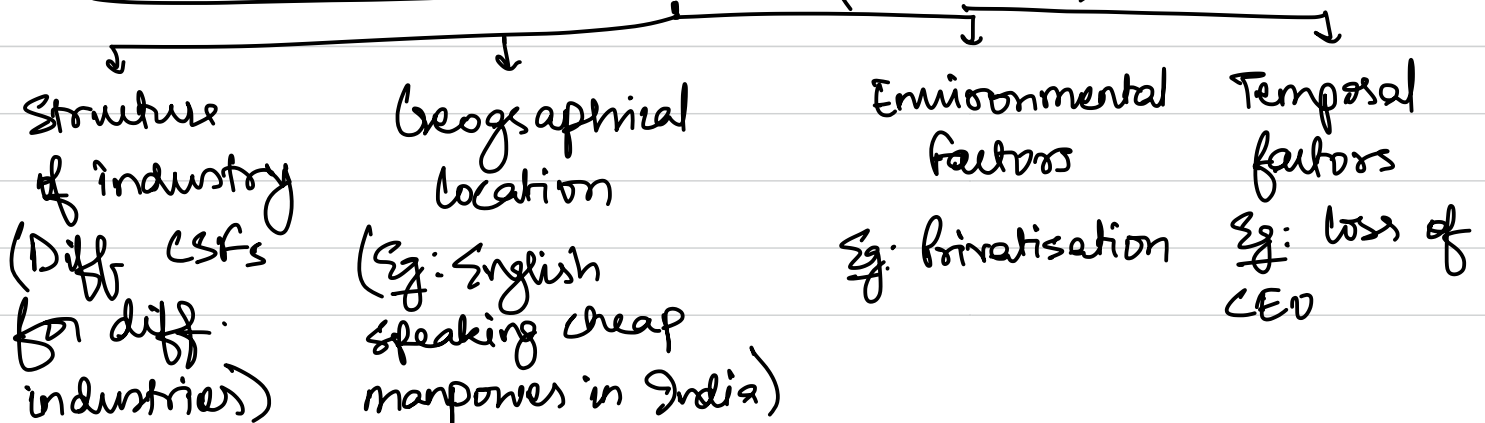 Structure
of industry
(Diff CSFs
for diff.
industries)
Geographical
location
(Eg: English
speaking cheap
manpower in India)
Environmental
factors
Eg: Privatisation
Temporal
factors
Eg: loss of
CEO